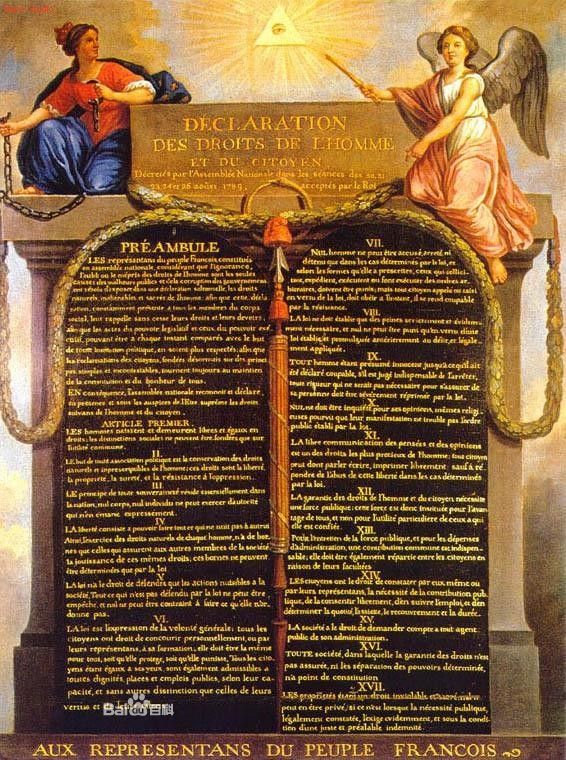 DÉCLARATION
DES DROITS DE L'HOMME
ET DU CITOYEN,
Décretés par l'Assemblée Nationale dans les séances des 20, 21
23, 24 et 26 août 1789, acceptés par le Roi
PRÉAMBULE
LES représentans du peuple Francois, constitués
en assemblée nationale, considérant que l'ignorance,
l'oubli ou le mépris des droits de l'homme sont les seules
causes des malheurs publics et de la corruption des gouvernemens
ont résolus d'exposer dans une déclaration solemnelle, les droits
naturels, inaliénables et sacrés de l'homme; afin que cette décla-
ration, constamment présente a tous les membres du corps
social, leur rappelle sans cesse leurs droits et leurs devoirs;
afin que les actes du pouvoir legislatif et ceux du pouvoir exé-
cutif, pouvant être a chaque instant comparés avec le but
de toute institution politique, en soient plus respectés; afin que
les reclamations des citoyens, fondées désormais sur des princi-
pes simples et incontestables, tournent toujours au maintien
de la constitution et du bonheur de tous.
EN conséquence, l'assemblée nationale reconnoit et déclare,
en presence et sous les auspices de l'Etre suprême les droits
suivans de l'homme et du citoyen.
ARTICLE PREMIER.
LES hommes naissent et demeurent libres et égaux en
droits; les distinctions sociales ne peuvent être fondées que sur
l'utilité commune.
II.
LE but de toute association politique est la conservation des droits
naturels et imprescriptibles de l'homme; ces droits sont la liberté,
la propriété, la sureté, et la résistance à l'oppression.
III.
LE principe de toute souveraineté réside essentiellement dans
la nation, nul corps, nul individu ne peut exercer d'autorité
qui n'en émane expressement.
IV.
LA liberté consiste a pouvoir faire tout ce qui ne nuit pas à autrui
Ainsi, l'exercice des droits naturels de chaque homme, n'a de bor-
nes que celles qui assurent aux autres membres de la société
la jouissance de ces mêmes droits; ces bornes ne peuvent
être déterminées que par la loi
V.
LA loi n'a le droit de défendre que les actions nuisibles à la
société. Tout ce qui n'est pas défendu par la loi ne peut être
empêché, et nul ne peut être contraint à faire ce qu'elle n'or-
donne pas.
VI.
LA loi est l'expression de la volonté générale; tous les
citoyens ont droit de concourir personnellement, ou par
leurs représentans, à sa formation; elle doit être la même
pour tous, soit qu'elle protege, soit qu'elle punisse. Tous les cito-
yens étans égaux a ses yeux, sont également admissibles a
toutes dignités, places et emplois publics, selon leur ca-
pacité, et sans autres distinction que celles de leurs
vertus et de leurs
VII.
NUL homme ne peut être accusé, arreté, ni
détenu que dans les cas déterminés par la loi, et
selon les formes qu'elle a prescrittes, ceux qui sollici-
tent, expédient, exécutent ou font exécuter des ordres ar-
bitraires, doivent être punis; mais tout citoyen appelé ou saisi
en vertu de la loi, doit obéir a l'instant, il se rend coupable
par la résistance.
VIII.
LA loi ne doit établir que des peines strictement et évidem-
ment nécessaire, et nul ne peut être puni qu'en vertu d'une
loi établie et promulguée antérieurement au délit, et légale-
ment appliquée.
IX.
TOUT homme étant présumé innocent jusqu'a ce qu'il ait
été déclaré coupable, s'il est jugé indispensable de l'arréter,
toute rigueur qui ne serait pas nécessaire pour s'assurer de
sa personne doit être sévérement réprimée par la loi.
X.
NUL ne doit être inquiété pour ses opinions, mêmes religi-
euses pourvu que leur manifestation ne trouble pas l'ordre
public établi par la loi.
XI.
LA libre communication des pensées et des opinions
est un des droits les plus precieux de l'homme; tout citoyen
peut donc parler, écrire, imprimer librement, sauf à ré-
pondre de l'abus de cette liberté dans les cas déterminés
par la loi.
XII.
LA garantie des droits de l'homme et du citoyen nécessite
une force publique; cette force est donc instituée pour l'avan-
tage de tous, et non pour l'utilité particuliere de ceux a qui
elle est confiée.
XIII.
POUR l'entretien de la force publique, et pour les dépenses
d'administration, une contribution commune est indispen-
sable; elle doit être également répartie entre les citoyens en
raison de leurs facultées
XIV.
LES citoyens ont le droit de constater par eux même ou
par leurs représentans, la nécessité de la contribution pub-
lique, de la consentir librement, d'en suivre l'emploi, et d'en
déterminer la quotité, l'assiette, le recouvrement et la durée.
XV.
LA société a le droit de demander compte a tout agent
public de son administration.
XVI.
TOUTE société, dans laquelle la garantie des droits n'est
pas assurée, ni les séparation des pouvoirs déterminée,
n'a point de constitution
XVII.
LES propriétés étant un droit inviolable et sacré, nul ne
peut en être privé, si ce n'est lorsque la nécessité publique,
légalement constatée, l'exige évidemment, et sous la condi-
tion d'une juste et préalable indemnité.
AUX REPRESENTANS DU PEUPLE FRANCOIS
Bai百科